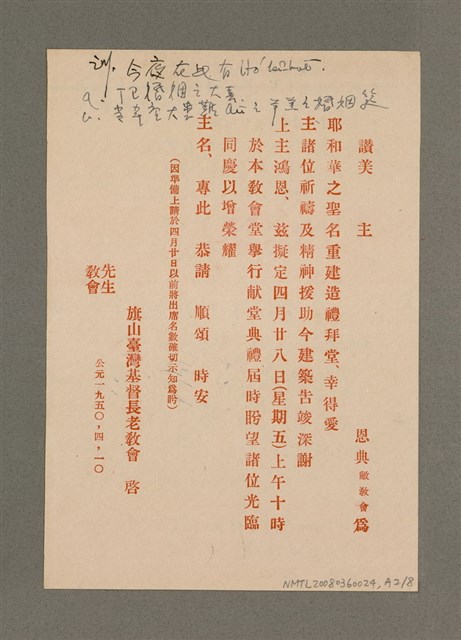 訓. 今夜在此有
讚美　主　恩典敝敎會爲
耶和華之聖名重建造禮拜堂、幸得愛
主諸位祈禱及精神援助今建築告竣深謝
上主鴻恩、茲擬定四月廿八日(星期五)上午十時
於本敎會堂擧行献堂典禮屆時盼望諸位光臨
同慶以增榮耀
主名、專此　恭請　順頌　時安
(因準備上請於四月廿日以前將出席名數確切示知爲盼)
旗山臺灣基督長老敎會　啓
公元一九五〇,四,一〇
先生
敎會
NMTL20080360024, A2/8